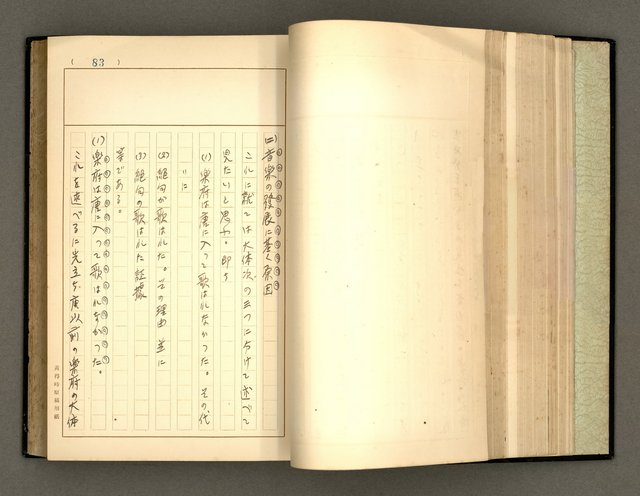 ( 83 )
(二)音楽の発展に基く原因
これに就ては大体次の三つに分けて述べて
見たいと思ふ。即ち
(1) 楽府は唐に入って歌はれなかった。その代
りに
(2) 絶句が歌はれた。その理由 並に
(3) 絶句の歌はれた証拠
等である。
(1) 楽府は唐に入って歌はれなかった。
これを述べるに先立ち、唐以前の楽府の大体
黄得時原稿用紙